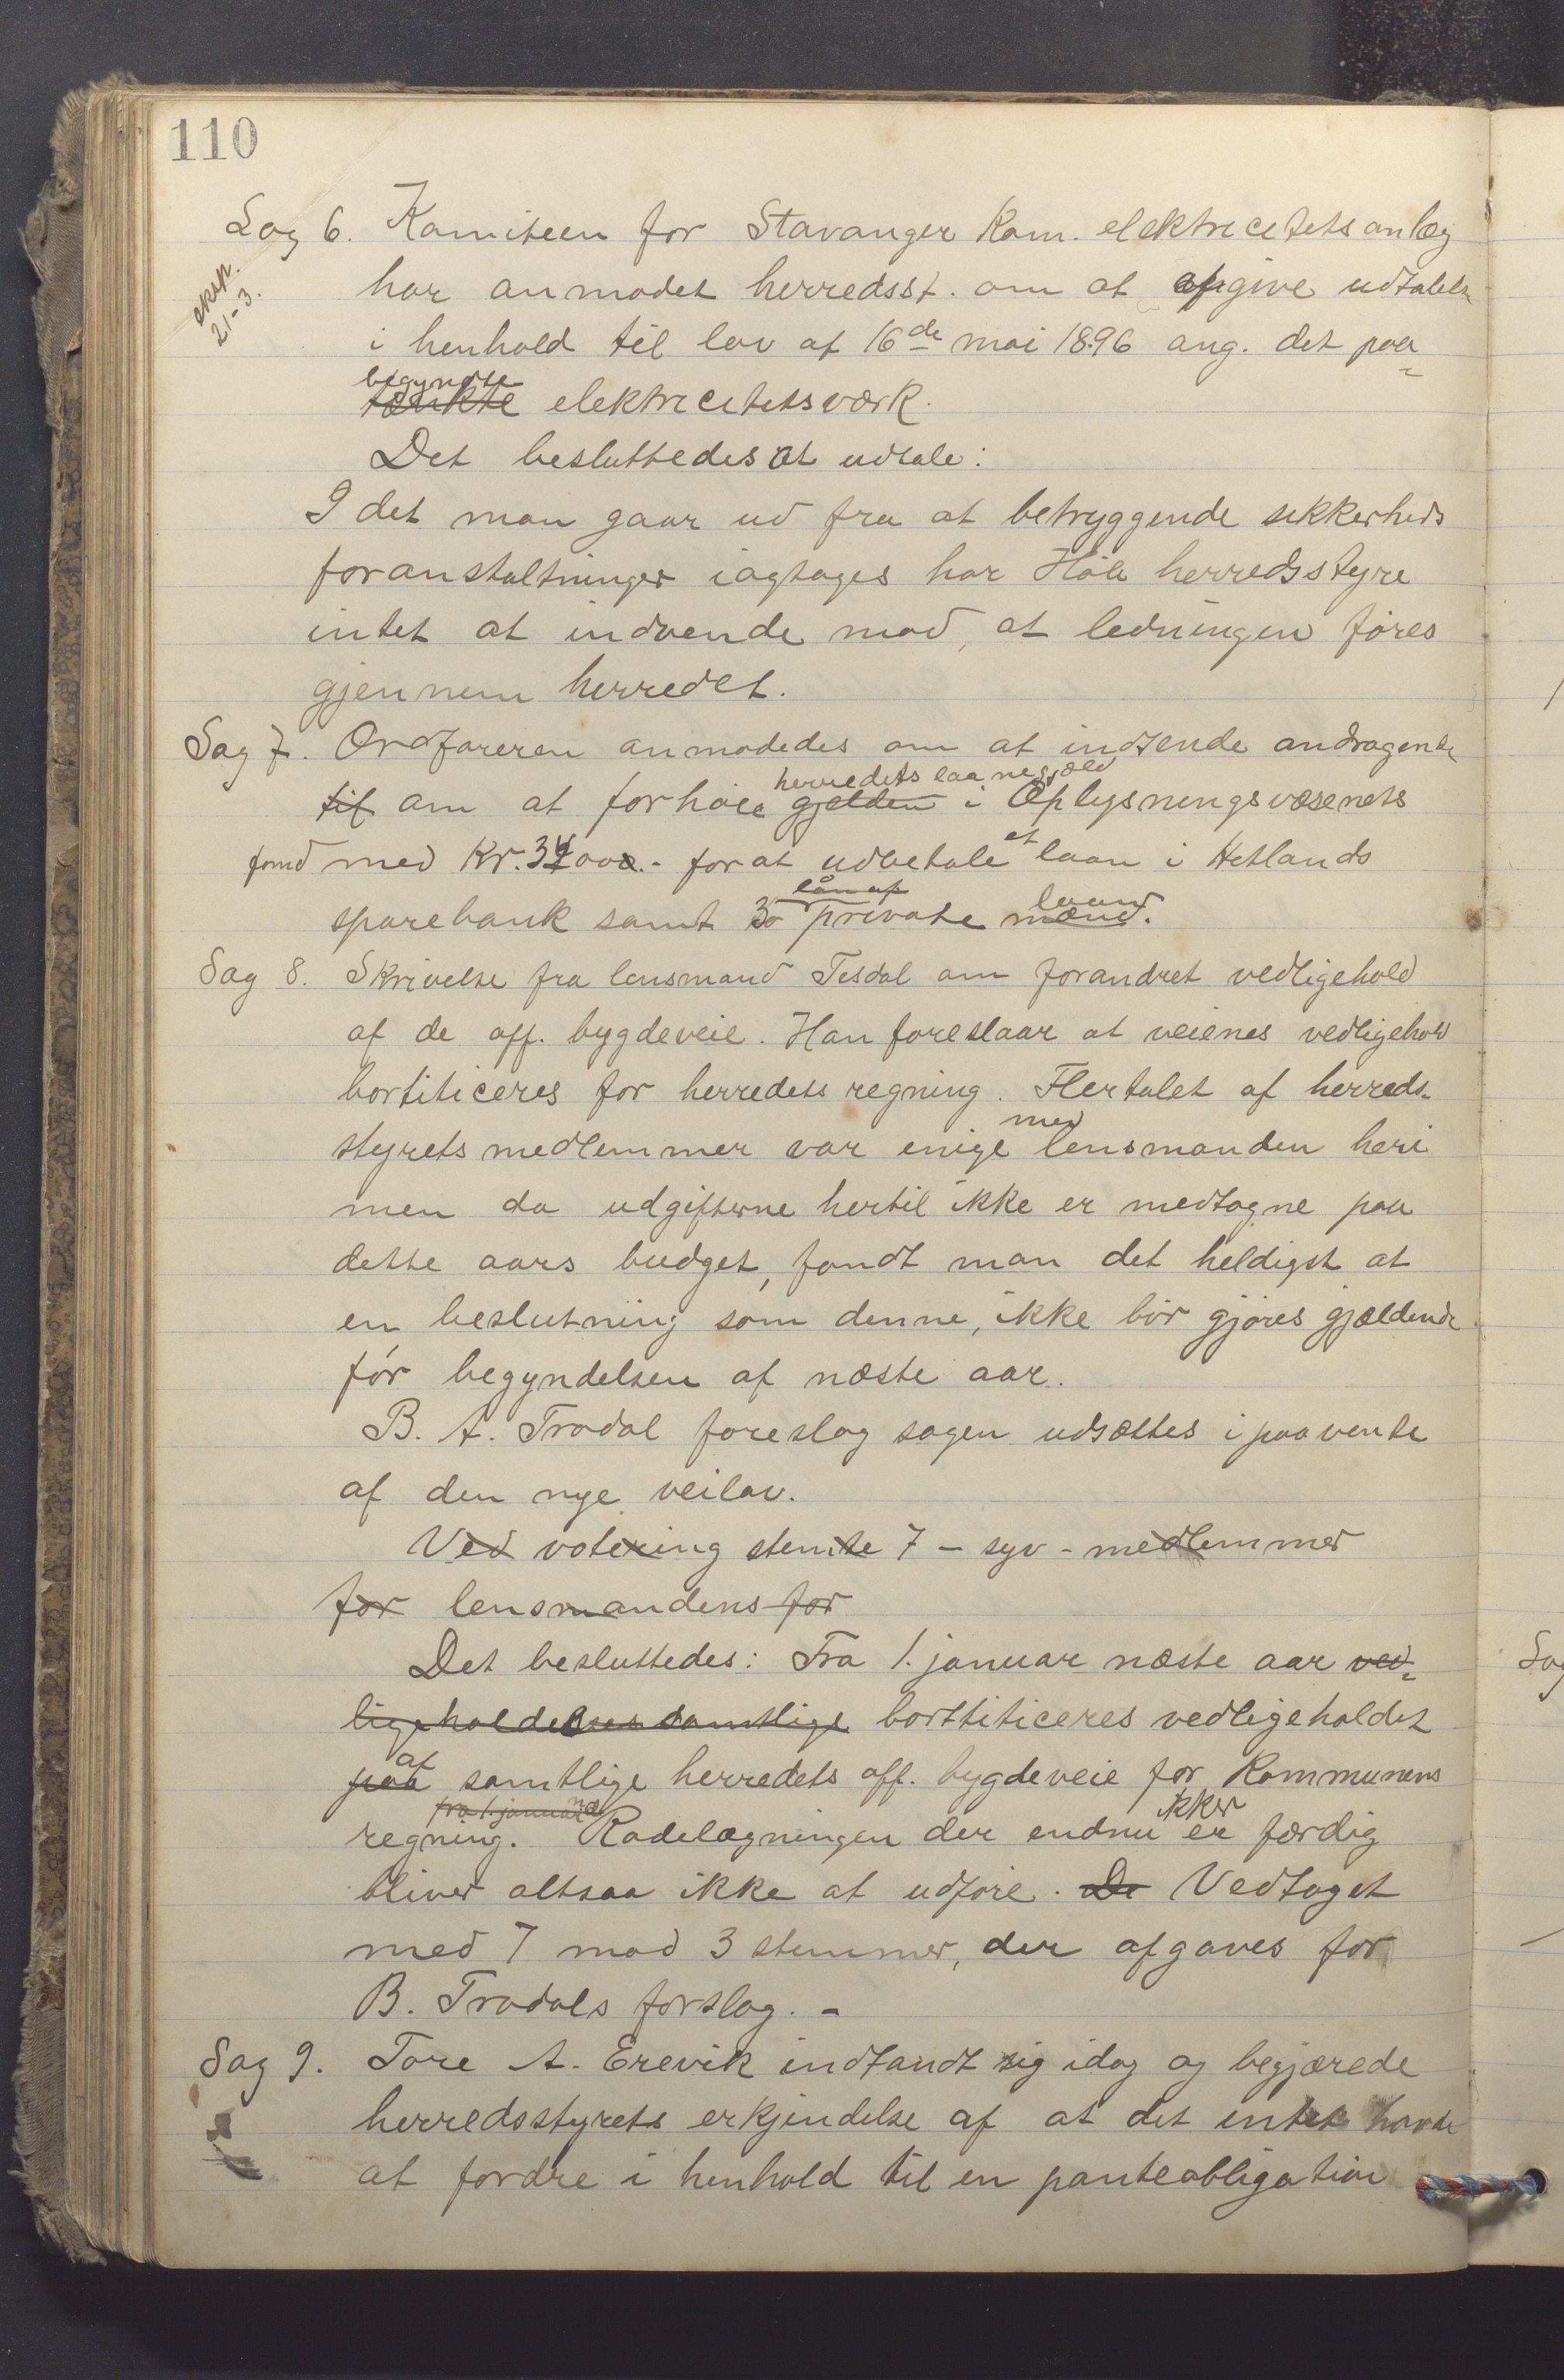 110
Sag 6. Komiteen for Stavanger Kom. elektricitetsanlæg
eksp. 21-3.
har anmodet herredsst. om at afgive udtalelse
i henhold til lov af 16de mai 1896 ang. det paa-
begyndte
tænkte elektricitetsværk.
Det besluttedes at udtale:
I det man gaar ud fra at betryggende sikkerheds
foranstaltninger iagtages har Høle herredsstyre
intet at indvende mod, at ledningen føres
gjennem herredet.
Sag 7. Ordføreren anmodedes om at indsende andragende
herredets laanegjæld
til om at forhøie gjelden i Oplysningsvæsenets
fond med Kr. for at udbetale et laan i Hetlands
lån af laan
sparebank samt private mænd.
Sag 8. Skrivelse fra lensmand Tesdal om forandret vedligehold
af de off. bygdeveie. Han foreslaar at veienes vedligehold
bortliciteres for herredets regning. Flertalet af herreds-
med
styrets medlemmer var enige lensmanden heri
men da udgifterne hertil ikke er medtagne paa
dette aars budget, fandt man det heldigst at
en beslutning som denne, ikke bør gjøres gjældende
før begyndelsen af næste aar.
B. A. Trodal foreslog sagen udsættes i paavente
af den nye veilov.
Ved votering stemte 7 - syv - medlemmer
for lensmandens for
Det besluttedes: Fra 1. januar næste aar ved-
ligeholdelses samtlige borttiticeres vedligeholdet
af
paa samtlige herredets off. bygdeveie for Kommunens
fra 1. januar næ ikke
regning. Rodelægningen der endnu er færdig
bliver altsaa ikke at udføre. De Vedtaget
med 7 mod 3 stemmer, der afgaves for
B. Trodals forslag. -
Sag 9. Tore A. Erevik indfandt sig idag og begjærede
herredsstyrets erkjendelse af at det intet havde
at fordre i henhold til en panteobligation
Sag